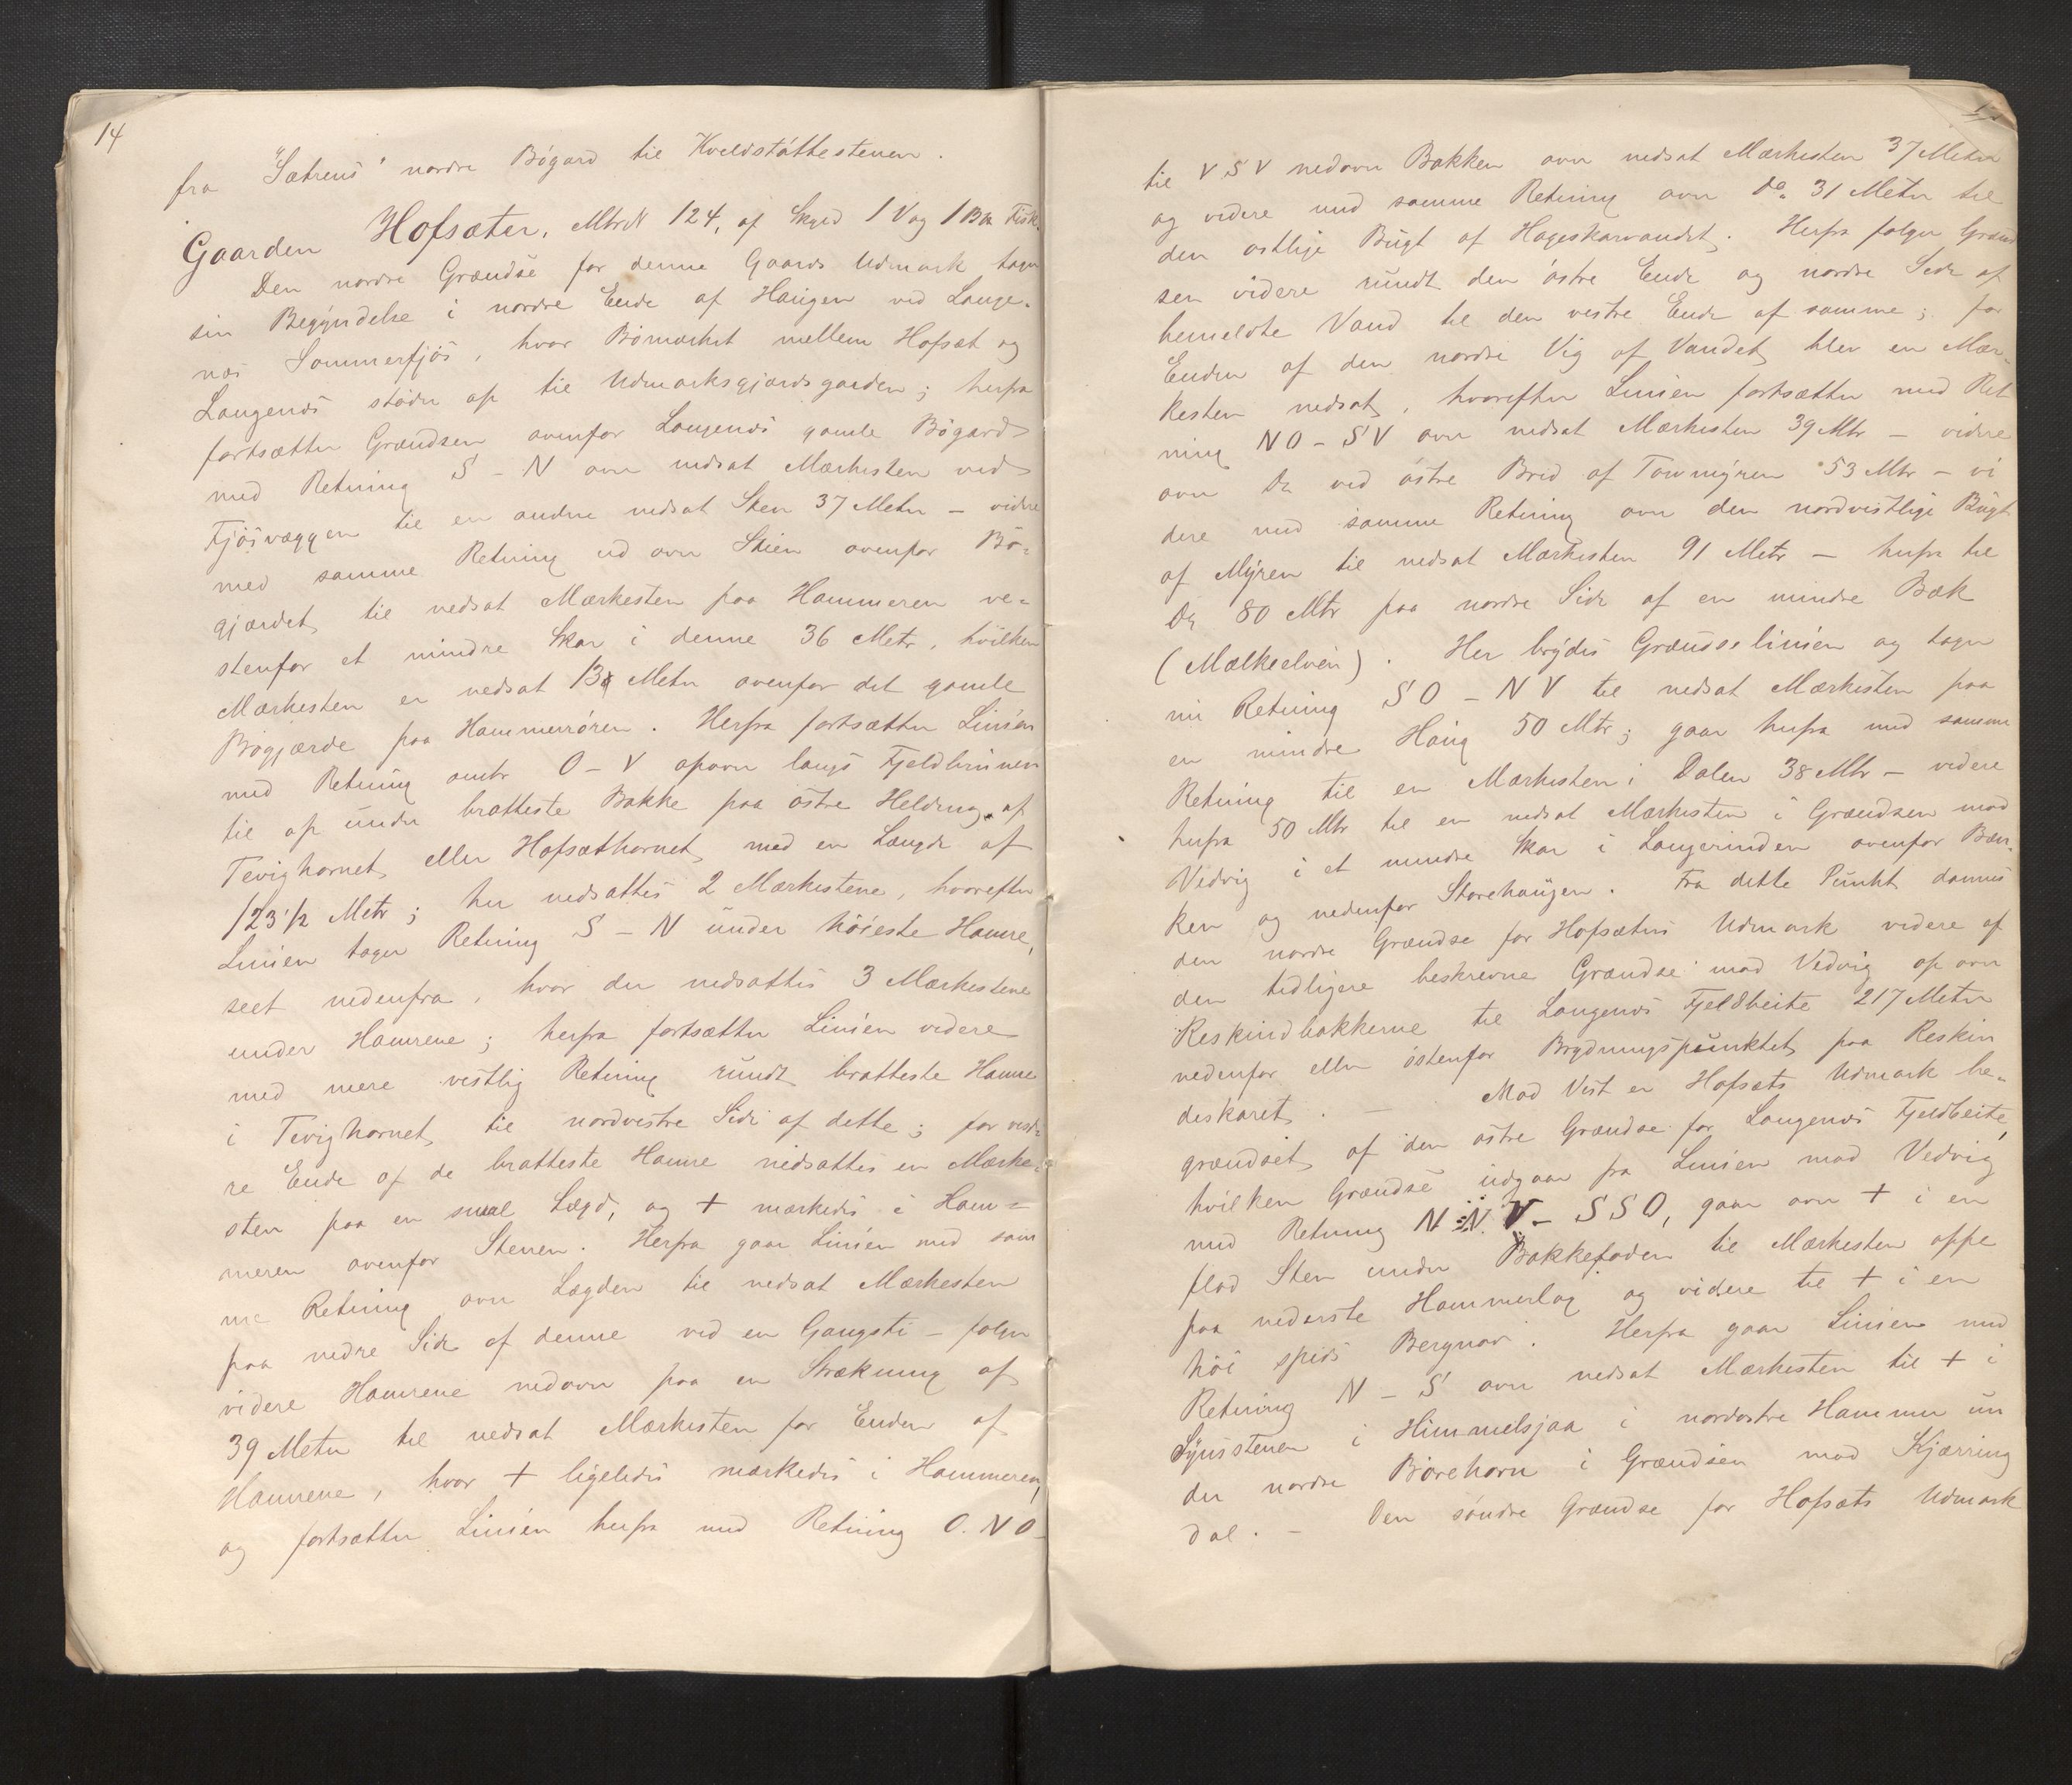 14
fra "Sætrens" nordre Bøgard til Kveldstøttestenen.
Gaarden Hofsæter, MtrN 124, af Skyld 1 Vog 1 Bæ Fisk.
Den nordre Grændse for denne Gaards Udmark tager
sin Begÿndelse i nordre Ende af Haugen ved Lange-
næs Sommerfjøs, hvor Bømærket mellem Hofsæt og
Langenæs støder op til Udmarksgjærdsgarden; herfra
fortsætter Grændsen ovenfor Langenæs gamle Bøgard
med Retning S - N over nedsat Mærkesten ved
Fjøsvæggen til en anden nedsat Sten 37 Meter - videre
med samme Retning ud over Skien ovenfor Bø-
gjærdet til nedsat Mærkesten paa Hammeren ve-
stenfor et mindre Skar i denne 36 Metr, hvilken
Mærkesten er nedsat Meter ovenfor det gamle
Bøgjærde paa Hammerrøren. Herfra fortsætter Linien
med Retning omtr O - V opover langs Fjeldbrünen
til op ünder bratteste Bakke paa østre Helding af
Tevighornet eller Hofsæthornet med en Længde af
123 1/2 Metr; her nedsattes 2 Mærkestene, hvorefter
Linien tager Retning S - N ünder høieste Hamre,
seet nedenfra, hvor der nedsattes 3 Mærkestene
under Hamrene; herfra fortsætter Linien videre
med mere vestlig Retning rundt bratteste Hamre
i Tevighornet til nordvestre Side af dette; for vest-
re Ende af de bratteste Hamre nedsattes en Mærke-
sten paa en smal Lægd, og + mærkedes i Ham-
meren ovenfor Stenen. Herfra gaar Linien med sam
me Retning over Lægden til nedsat Mærkesten
paa nedre Side af denne ved en Gangsti - følger
videre Hamrene nedover paa en Strækning af
39 Meter til nedsat Mærkesten for Enden af
Hamrene, hvor + ligeledes mærkedes i Hammeren,
og fortsætter Linien herfra med Retning O.N.O-
til V S V nedover Bakken over nedsat Mærkesten 37 Meter
og videre med samme Retning over Do 31 Meter til
den østlige Bügt af Hageskarvandet. Herfra følger Grænd
sen videre rundt den østre Ende og nordre Side af
bemeldte Vand til den vestre Ende af samme; for
Enden af den nordre Vig af Vandet blev en Mær-
kesten nedsat, hvorefter Linien fortsætter med Ret
ning NO - SV over nedsat Mærkesten 39 Mtr - videre
over Do ved østre Bred af Torvmÿren 53 Mtr - vi
dere med samme Retning over den nordvestlige Bügt
af Mÿren til nedsat Mærkesten 91 Metr - herfra til
Do 80 Mtr paa nordre Side af en mindre Bæk
(Mælkeelven). Her brÿdes Grændselinien og tager
nu Retning SO - NV til nedsat Mærkesten paa
en mindre Haug 50 Mtr; gaar herfra med samme
Retning til en Mærkesten i Dalen 38 Mtr - videre
herfra 50 Mtr til en nedsat Mærkesten i Grændsen mod
Vedvig i et mindre Skar i Langerinden ovenfor Bæk-
ken og nedenfor Storehaugen. Fra dette Punkt dannes
den nordre Grændse for Hofsæters Udmark videre af
den tidligere beskrevne Grændse mod Vedvig op over
Reskindbakkerne til Langenæs Fjeldbeite 217 Meter
nedenfor eller østenfor Brydningspünktet paa Reskin
deskaret. - Mod Vest er Hofsæts Udmark be-
grændset af den østre Grændse for Langenæs Fjeldbeite,
hvilken Grændse udgaar fra Linien mod Vedvig
med Retning N.N.V - SSO, gaar over + i en
flad Sten under Bakkefoden til Mærkesten oppe
paa nederste Hammerlag og videre til + i en
høi spids Bergnov. Herfra gaar Linien med
Retning N - S over nedsat Mærkesten til + i
Sÿnsstenen i Himmelsjaa i nordostre Hammer ün
der nordre Børehorn i Grændsen mod Kjærring
dal. - Den søndre Grændse for Hofsæts Udmark